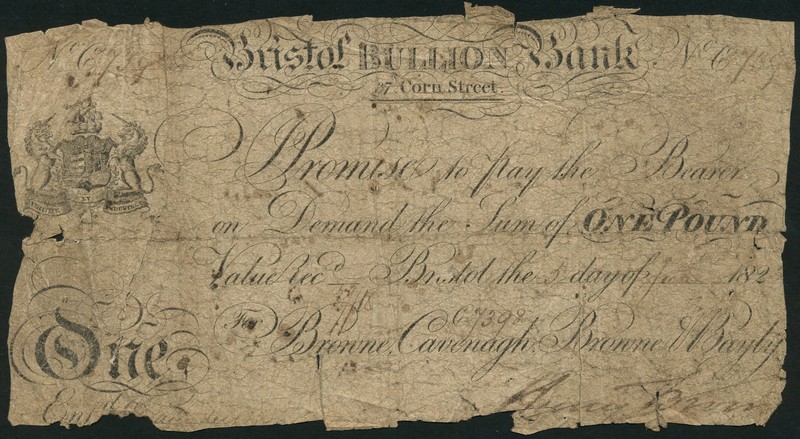 No C7398 Bristol BULLION Bank No C739
37 Corn Street.
VIRTUTE ET INDUSTRIA
Promise to pay the Bearer
on Demand the Sum of ONE POUND
Value Rec.d Bristol the 5 day of 182
C7398
One For Browne, Cavenagh, Browne & Bayly
Ent.d